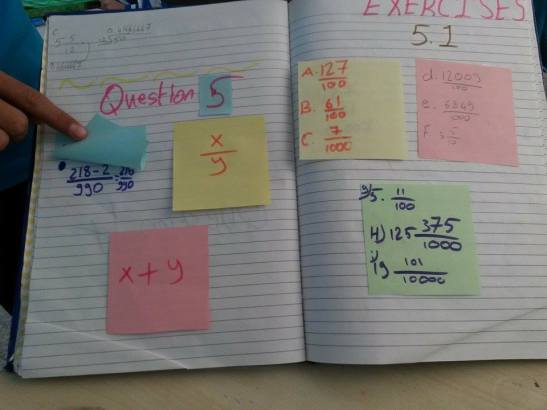 Question 5
x/y
218-2/990 = 216/990
x+y
EXERCISES
5.1
A. 127/100
B. 61/100
C. 7/1000
d. 12009/100
e.
F. 3 5/10
5. 11/100
H) 125 375/1000
19 101/10000